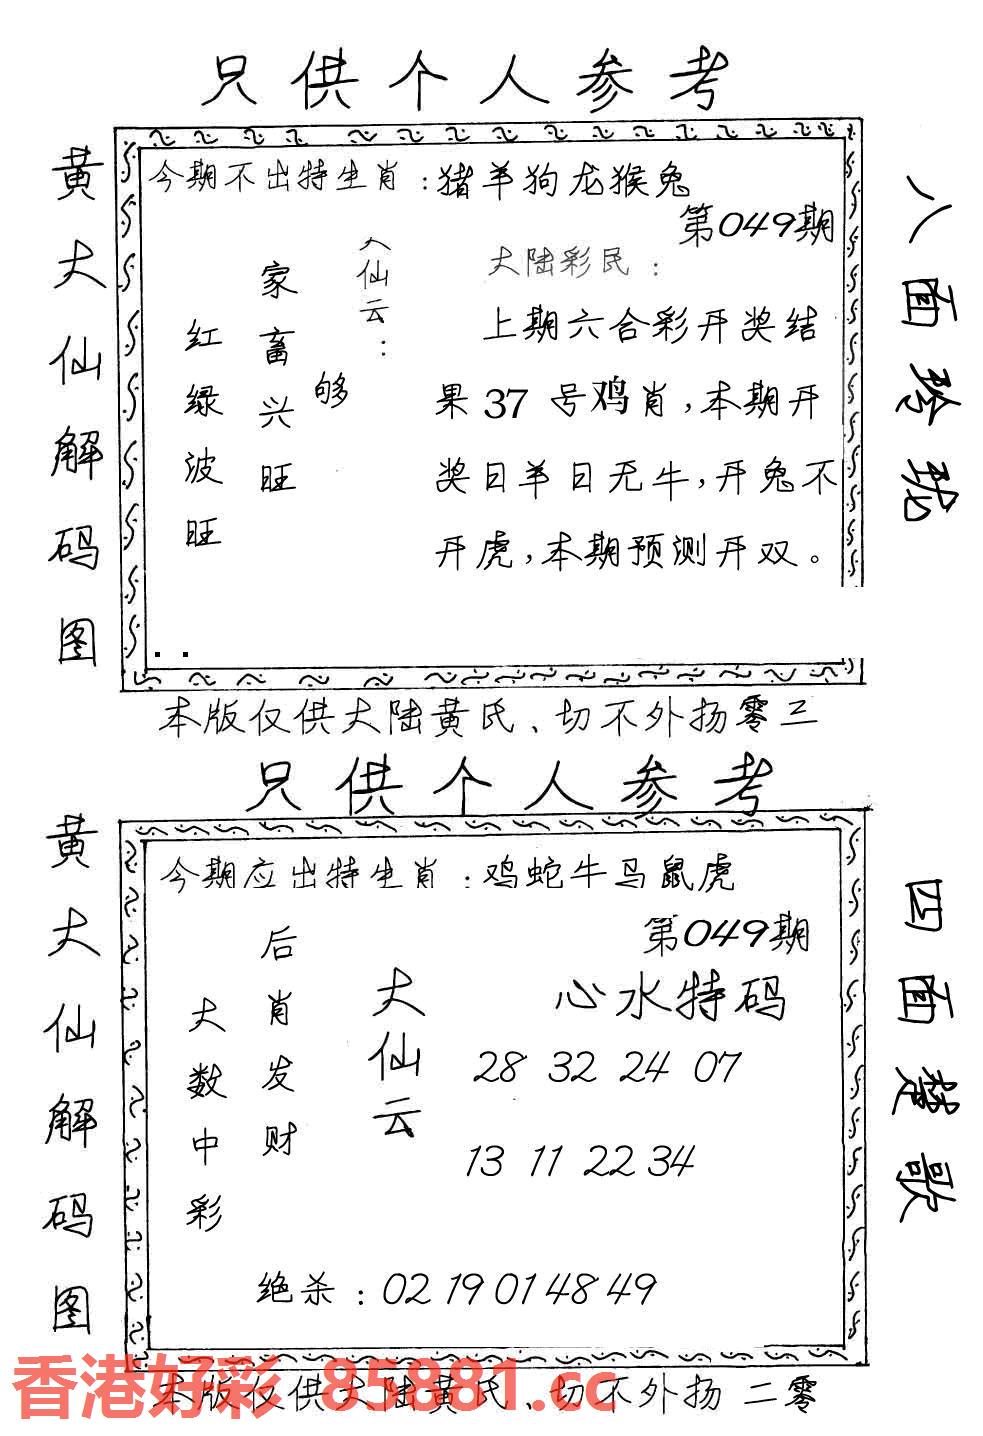 只供个人参考
黄大仙解码图
今期不出特生肖：猪羊狗龙猴兔
第049期
八面玲珑
大仙云：
家畜兴旺
够
红绿波旺
大陆彩民：
上期六合彩开奖结
果37号鸡肖，本期开
奖日羊日无牛，开兔不
开虎，本期预测开双。
本版仅供大陆黄氏、切不外扬零三
只供个人参考
黄大仙解码图
今期应出特生肖：鸡蛇牛马鼠虎
第049期
四面楚歌
大仙云
后肖发财
大数中彩
心水特码
28 32 24 07
13 11 22 34
绝杀：02 19 01 48 49
香港好彩 85881.cc
本版仅供大陆黄氏、切不外扬 二零